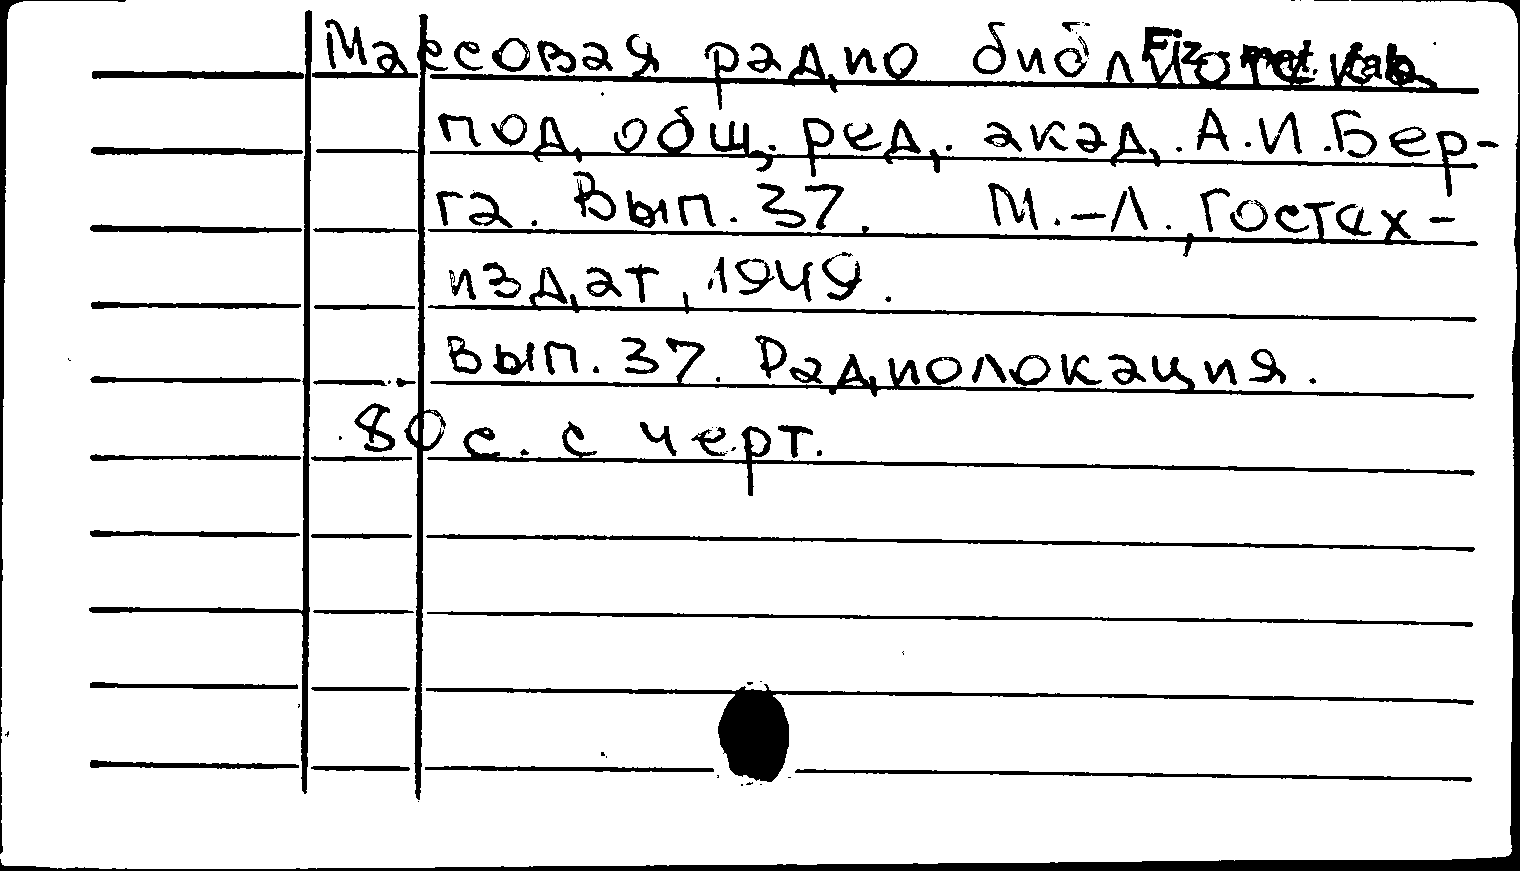 Массовая радио библиотека
под общ. ред. акад. А.И.Бер-
га. Вып. 37. М.-Л., Гостех-
издат, 1949.
Вып. 37. Радиолокация.
80 с. с черт.